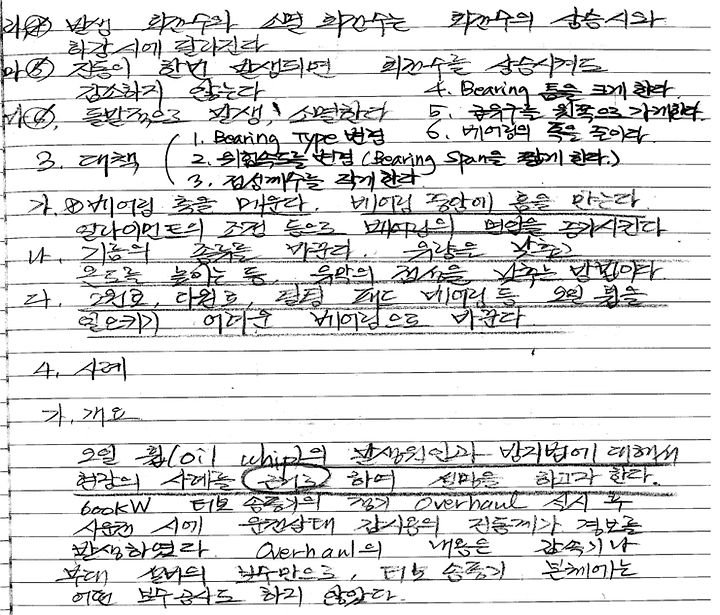 라(4) 발생 회전수와 소멸 회전수는 회전수의 상승시와
하강시에 달라진다
마(5) 진동이 한번 발생되면 회전수를 상승시켜도
감소하지 않는다 4. Bearing 틈을 크게 한다.
바(6). 돌발적으로 발생, 소멸한다 5. 급유구를 위쪽으로 가게한다.
1. Bearing Type 변경 6. 베어링의 폭을 줄이다
3. 대책 2. 위험속도를 변경 (Bearing Span을 짧게 한다.)
3. 점성계수를 작게 한다
가. ⊗베어링 홈을 메운다. 베어링 중앙에 홈을 만든다
얼라이먼트의 조건 등으로 베어링의 면압을 증가시킨다
나. 기름의 종류를 바꾼다. 유량은 낮추고
온도를 높이는 등, 유막의 점성을 낮추는 방법이다
다. 2원호, 다원호, 틸팅 패드 베어링 등 오일 휩을
일으키기 어려운 베어링으로 바꾼다
4. 사례
가. 개요
오일 휩(oil whip)의 발생원인과 방지법에 대해서
현장의 사례를 근거로 하여 설명을 하고자 한다.
600KW 터보 송풍기의 정기 Overhaul 실시 후
시운전 시에 운전상태 감시용의 진동계가 경보를
발생하였다. Overhaul의 내용은 감속기나
부대 설비의 보수만으로, 터보 송풍기 본체에는
어떤 보수공사도 하지 않았다.